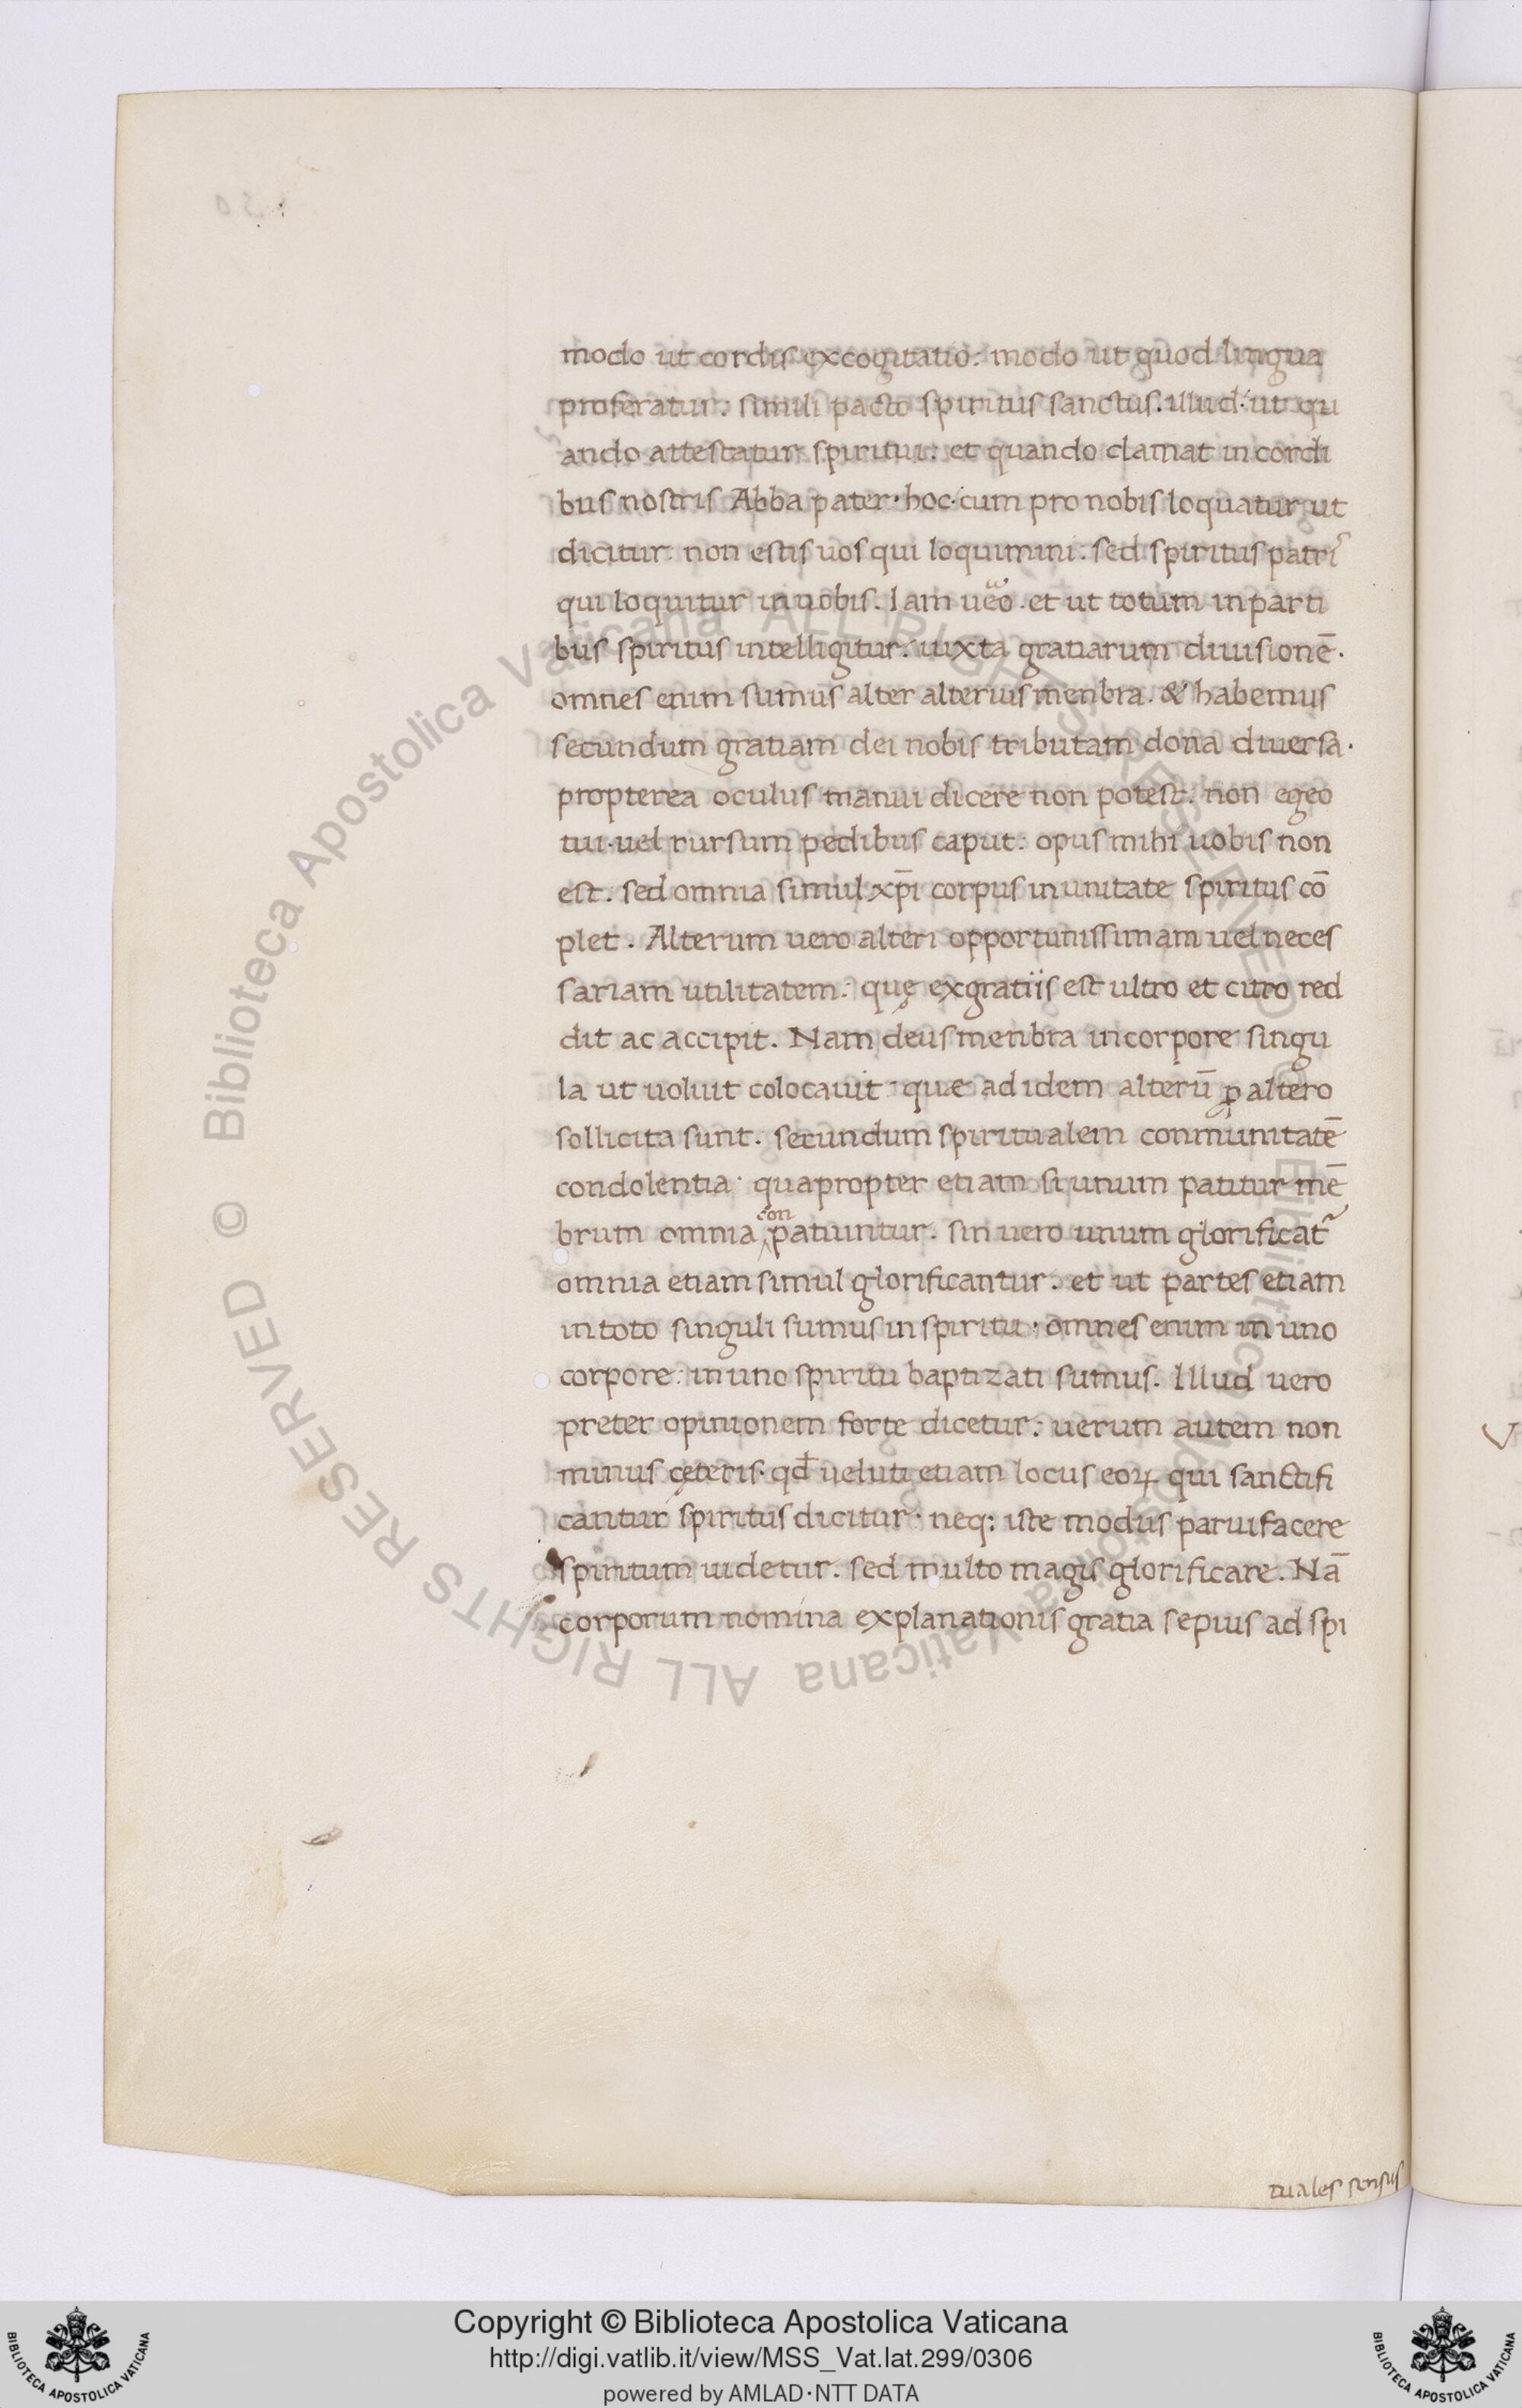 modo ut cordis excogitatio: modo ut quod lingua
proferatur: simili pacto spiritus sanctus. illud. ut qu
ando attestatur spiritui: et quando clamat in cordi
bus nostris Abba pater. hoc. cum pro nobis loquatur ut
dicitur. non estis uos qui loquimini. sed spiritus patris
qui loquitur in uobis. Iam ueͣo. et ut totum in parti
bus spiritus intelligitur. iuxta gratiarum diuisionē.
omnes enim sumus alter alterius menbra. & habemus
secundum gratiam dei nobis tributam dona diuersa.
propterea oculus manui dicere non potest. non egeo
tui. uel rursum pedibus caput: opus mihi uobis non
est. sed omnia simul xp̄i corpus in unitate spiritus cō
plet. Alterum uero alteri opportunissimam uel neces
sariam utilitatem: quę ex gratiis est ultro et citro red
dit ac accipit. Nam deus menbra in corpore singu
la ut uoluit colocauit. quae ad idem alterū ꝓ altero
sollicita sunt. secundum spiritualem conmunitatē
condolentia. quapropter etiam si unum patitur mē
brum omnia conpatiuntur. sin uero unum glorificat᷑
omnia etiam simul glorificantur. et ut partes etiam
in toto singuli sumus in spiritu. omnes enim in uno
corpore: in uno spiritu baptizati sumus. Illud uero
preter opinionem forte dicetur: uerum autem non
minus cęteris. qđ ueluti etiam locus eoꝝ qui sanctifi
cantur spiritus dicitur. neq: iste modus paruifacere
spiritum uidetur. sed multo magis glorificare. Nā
corporum nomina explanationis gratia sepius ad spi
tuales sensus
© Biblioteca Apostolica Vaticana ALL RIGHTS RESERVED © Biblioteca Apostolica Vaticana ALL RIGHTS RESERVED
Copyright © Biblioteca Apostolica Vaticana
http://digi.vatlib.it/view/MSS_Vat.lat.299/0306
powered by AMLAD·NTT DATA
BIBLIOTECA APOSTOLICA VATICANA
BIBLIOTECA APOSTOLICA VATICANA